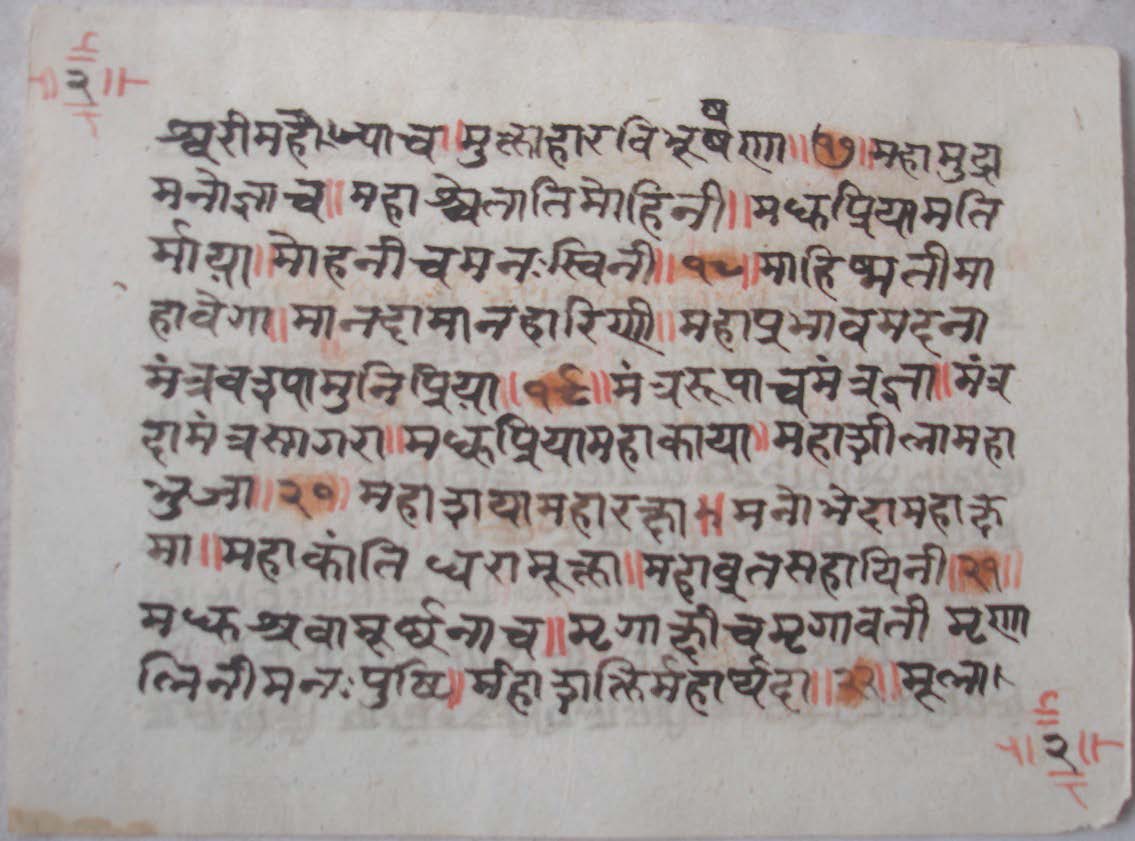 २
श्वरीमहौज्याच॥मुक्ताहारविभूषणा॥१७॥महामुद्रा
मनोज्ञाच॥महाश्वेतातिमोहिनी॥मधुप्रियामति
र्माया॥मोहनीचमनःस्विनी॥१८॥माहिष्मतीमा
हावेगा॥मानदामानहारिणी॥महाप्रभावमदना
मंत्रवश्पामुनिप्रिया॥१९॥मंत्ररूपाचमंत्रज्ञा॥मंत्र
दामंत्रसागरा॥मधुप्रियामहाकाया॥महाशीलामहा
भुजा॥२०॥महाशयामहारक्ता॥मनोभेदामहाक्ष
मा॥महाकांतिध्धरामूक्ता॥महाव्रतसहायिनी॥२१॥
मधुश्रवामूर्छनाच॥मृगाक्षीचमृगावती मृणा
लिनीमनःपुष्टि॥र्महाशक्तिर्महार्थदा॥२२॥मूला
२